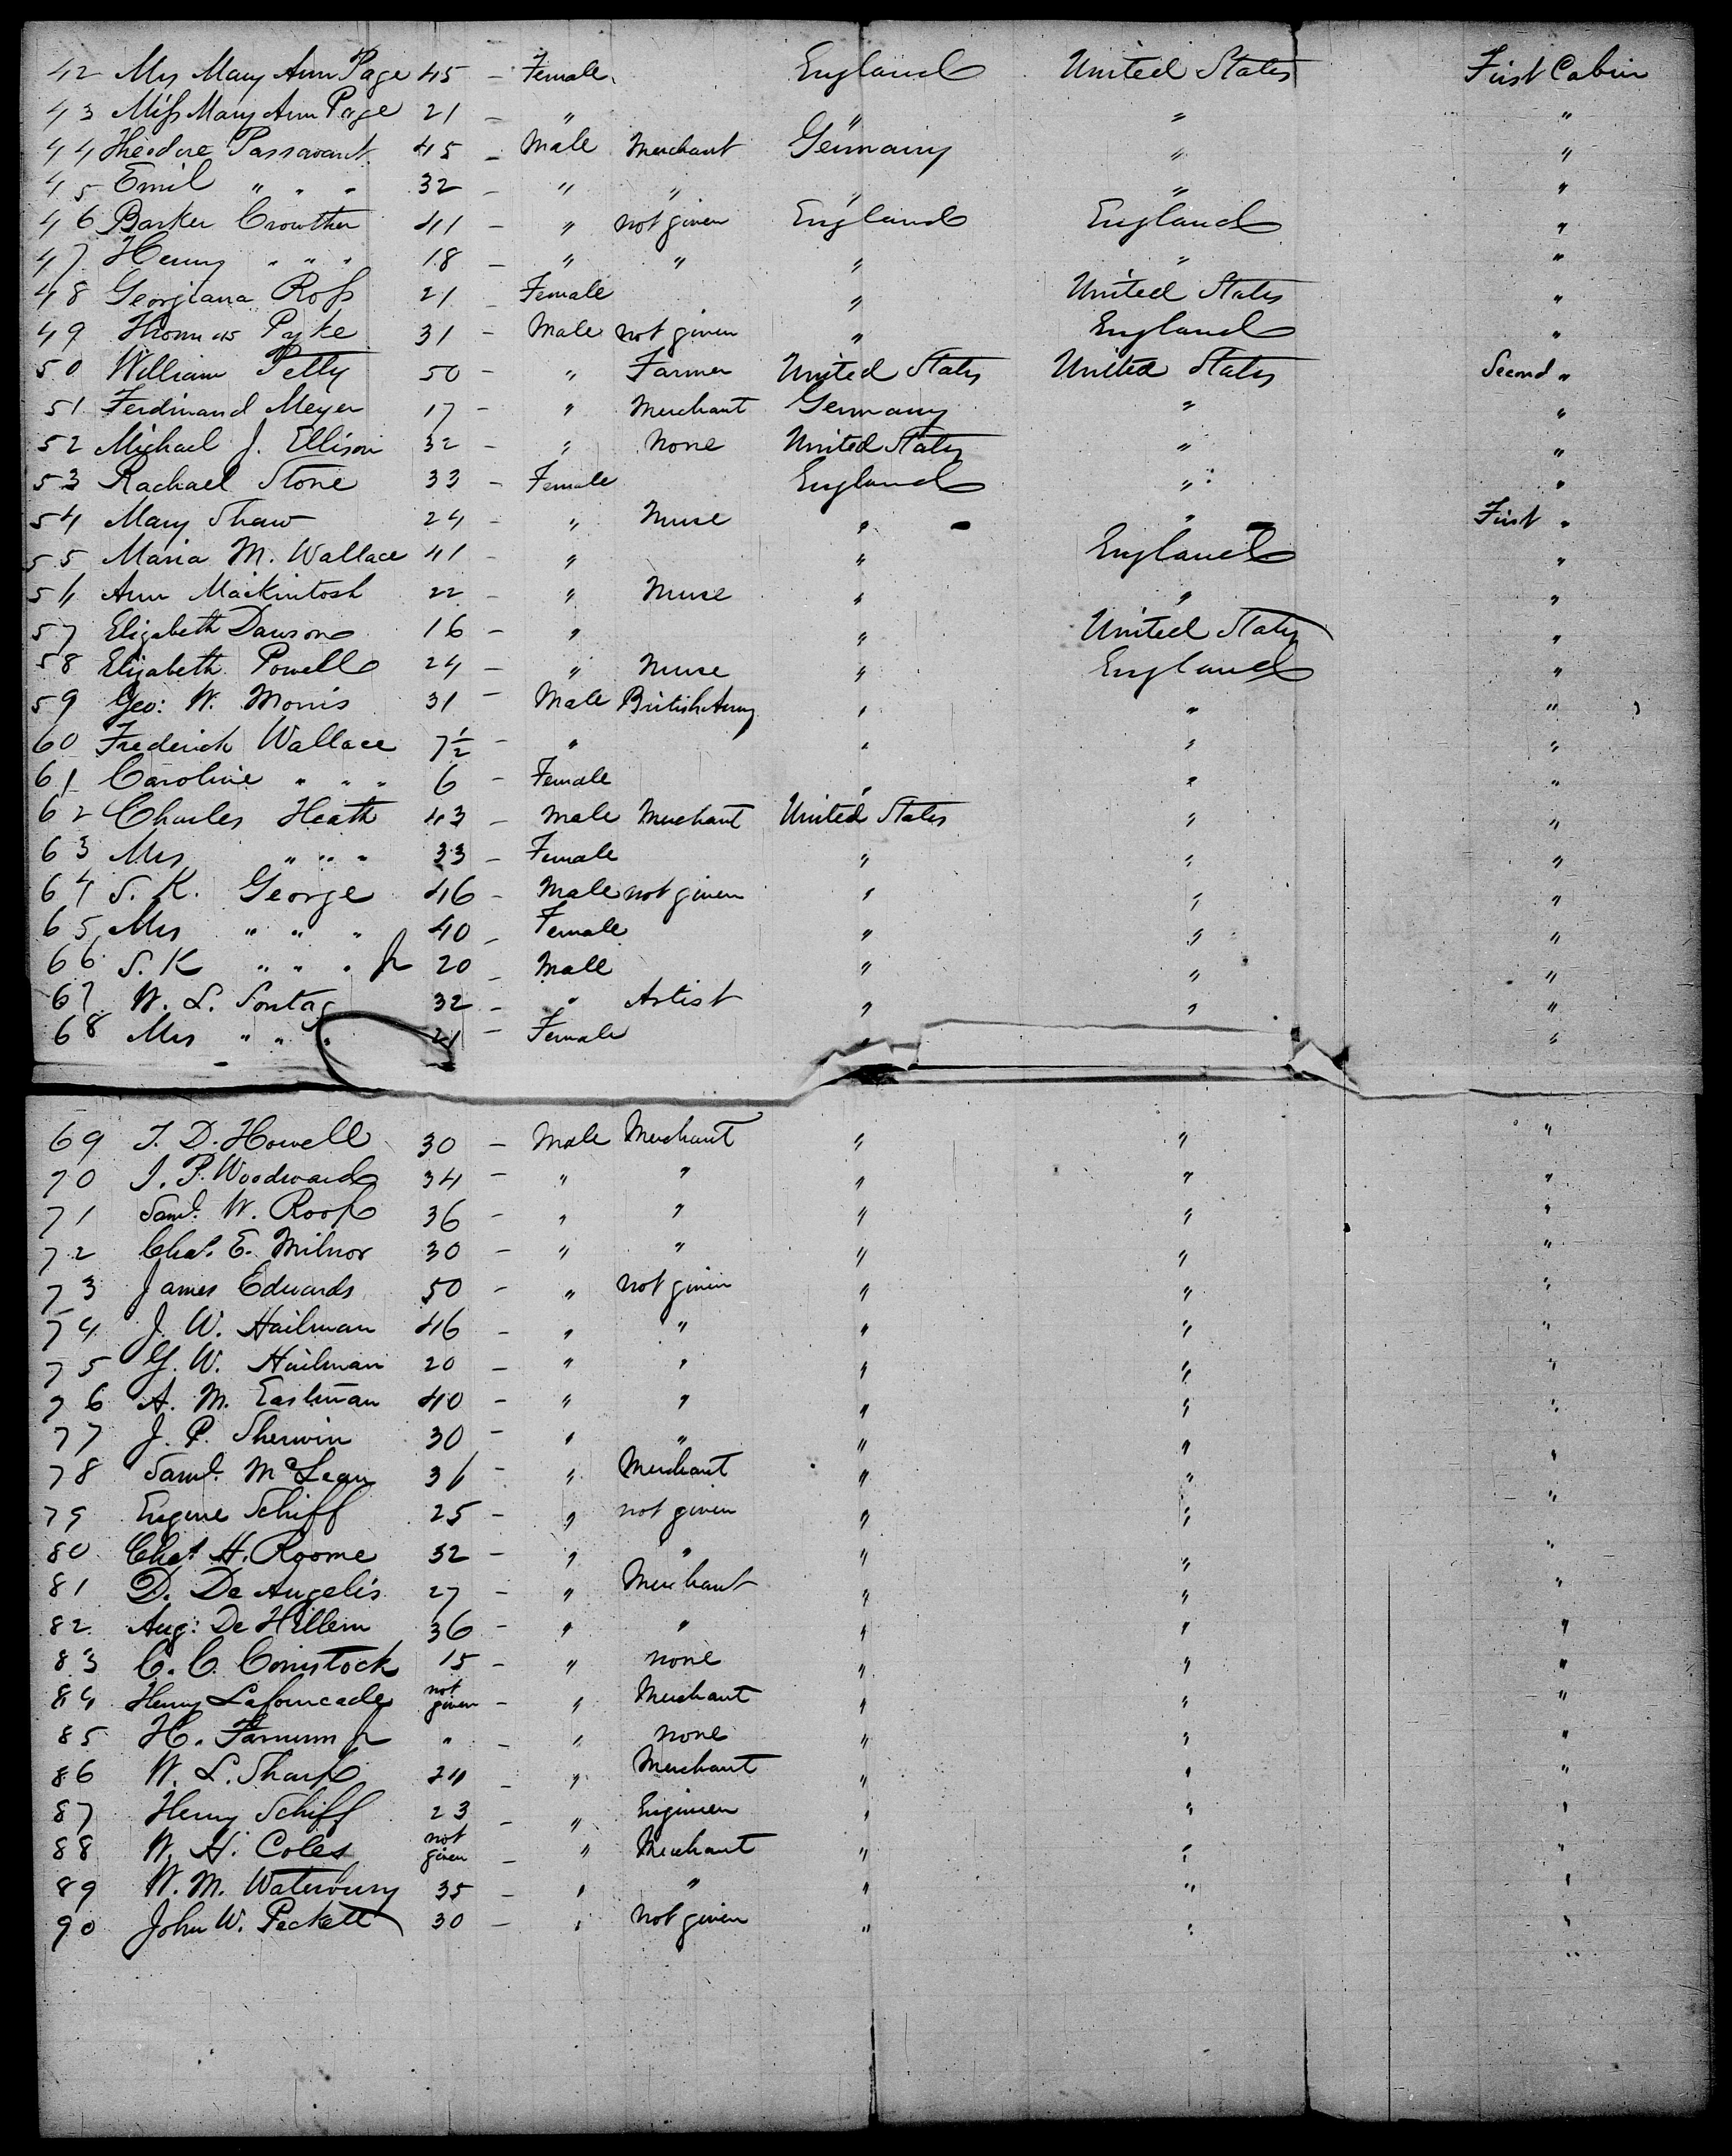 42 Mrs Mary Ann Page 45 - Female England United States First Cabin
43 Miss Mary Ann Page 21 - " " " "
44 Theodore Passavant 45 - Male Merchant Germany " "
45 Emil " " " 32 - " " " " "
46 Barker Crowther 41 - " not given England England "
47 Henry " " " 18 - " " " " "
48 Georgiana Ross 21 - Female " United States "
49 Thomas Pyke 31 - Male not given " England "
50 William Petty 50 - " Farmer United States United States Second "
51 Ferdinand Meyer 17 - " Merchant Germany " "
52 Michael J. Ellison 32 - " None United States " "
53 Rachael Stone 33 - Female England " "
54 Mary Shaw 24 - " Nurse " " First "
55 Maria M. Wallace 41 - " " England "
56 Ann Mackintosh 22 - " Nurse " " "
57 Elizabeth Dawson 16 - " " United States "
58 Elizabeth Powell 24 - " Nurse " England "
59 Geo: W. Morris 31 - Male British Army " " "
60 Frederick Wallace 7½ - " " " "
61 Caroline " " " 6 - Female " " "
62 Charles Heath 43 - Male Merchant United States " "
63 Mrs " " " 33 - Female " " "
64 S. K. George 46 - Male not given " " "
65 Mrs " " " 40 - Female " " "
66 S. K " " " Jr 20 - Male " " "
67 W. L. Sontag 32 - " Artist " " "
68 Mrs " " " 21 - Female "
69 T. D. Howell 30 - Male Merchant " " "
70 J. P. Woodward 34 - " " " " "
71 Saml. W. Roop 36 - " " " " "
72 Chas. E. Milnor 30 - " " " " "
73 James Edwards 50 - " not given " " "
74 J. W. Hailman 46 - " " " " "
75 G. W. Hailman 20 - " " " " "
76 A. M. Eastman 40 - " " " " "
77 J. P. Sherwin 30 - " " " " "
78 Saml. McLean 36 - " Merchant " " "
79 Eugene Schiff 25 - " not given " " "
80 Chas H. Roome 32 - " " " " "
81 D. De Angelis 27 - " Merchant " " "
82 Aug: De Hillern 36 - " " " " "
83 C. C. Comstock 15 - " none " " "
84 Henry Lafourcade not given - " Merchant " " "
85 H. Farnum Jr " - " none " " "
86 W. L. Sharp 24 - " Merchant " " "
87 Henry Schiff 23 - " Engineer " " "
88 W. H. Coles not given - " Merchant " " "
89 W. M. Waterbury 35 - " " " " "
90 John W. Peckett 30 - " not given " " "
"